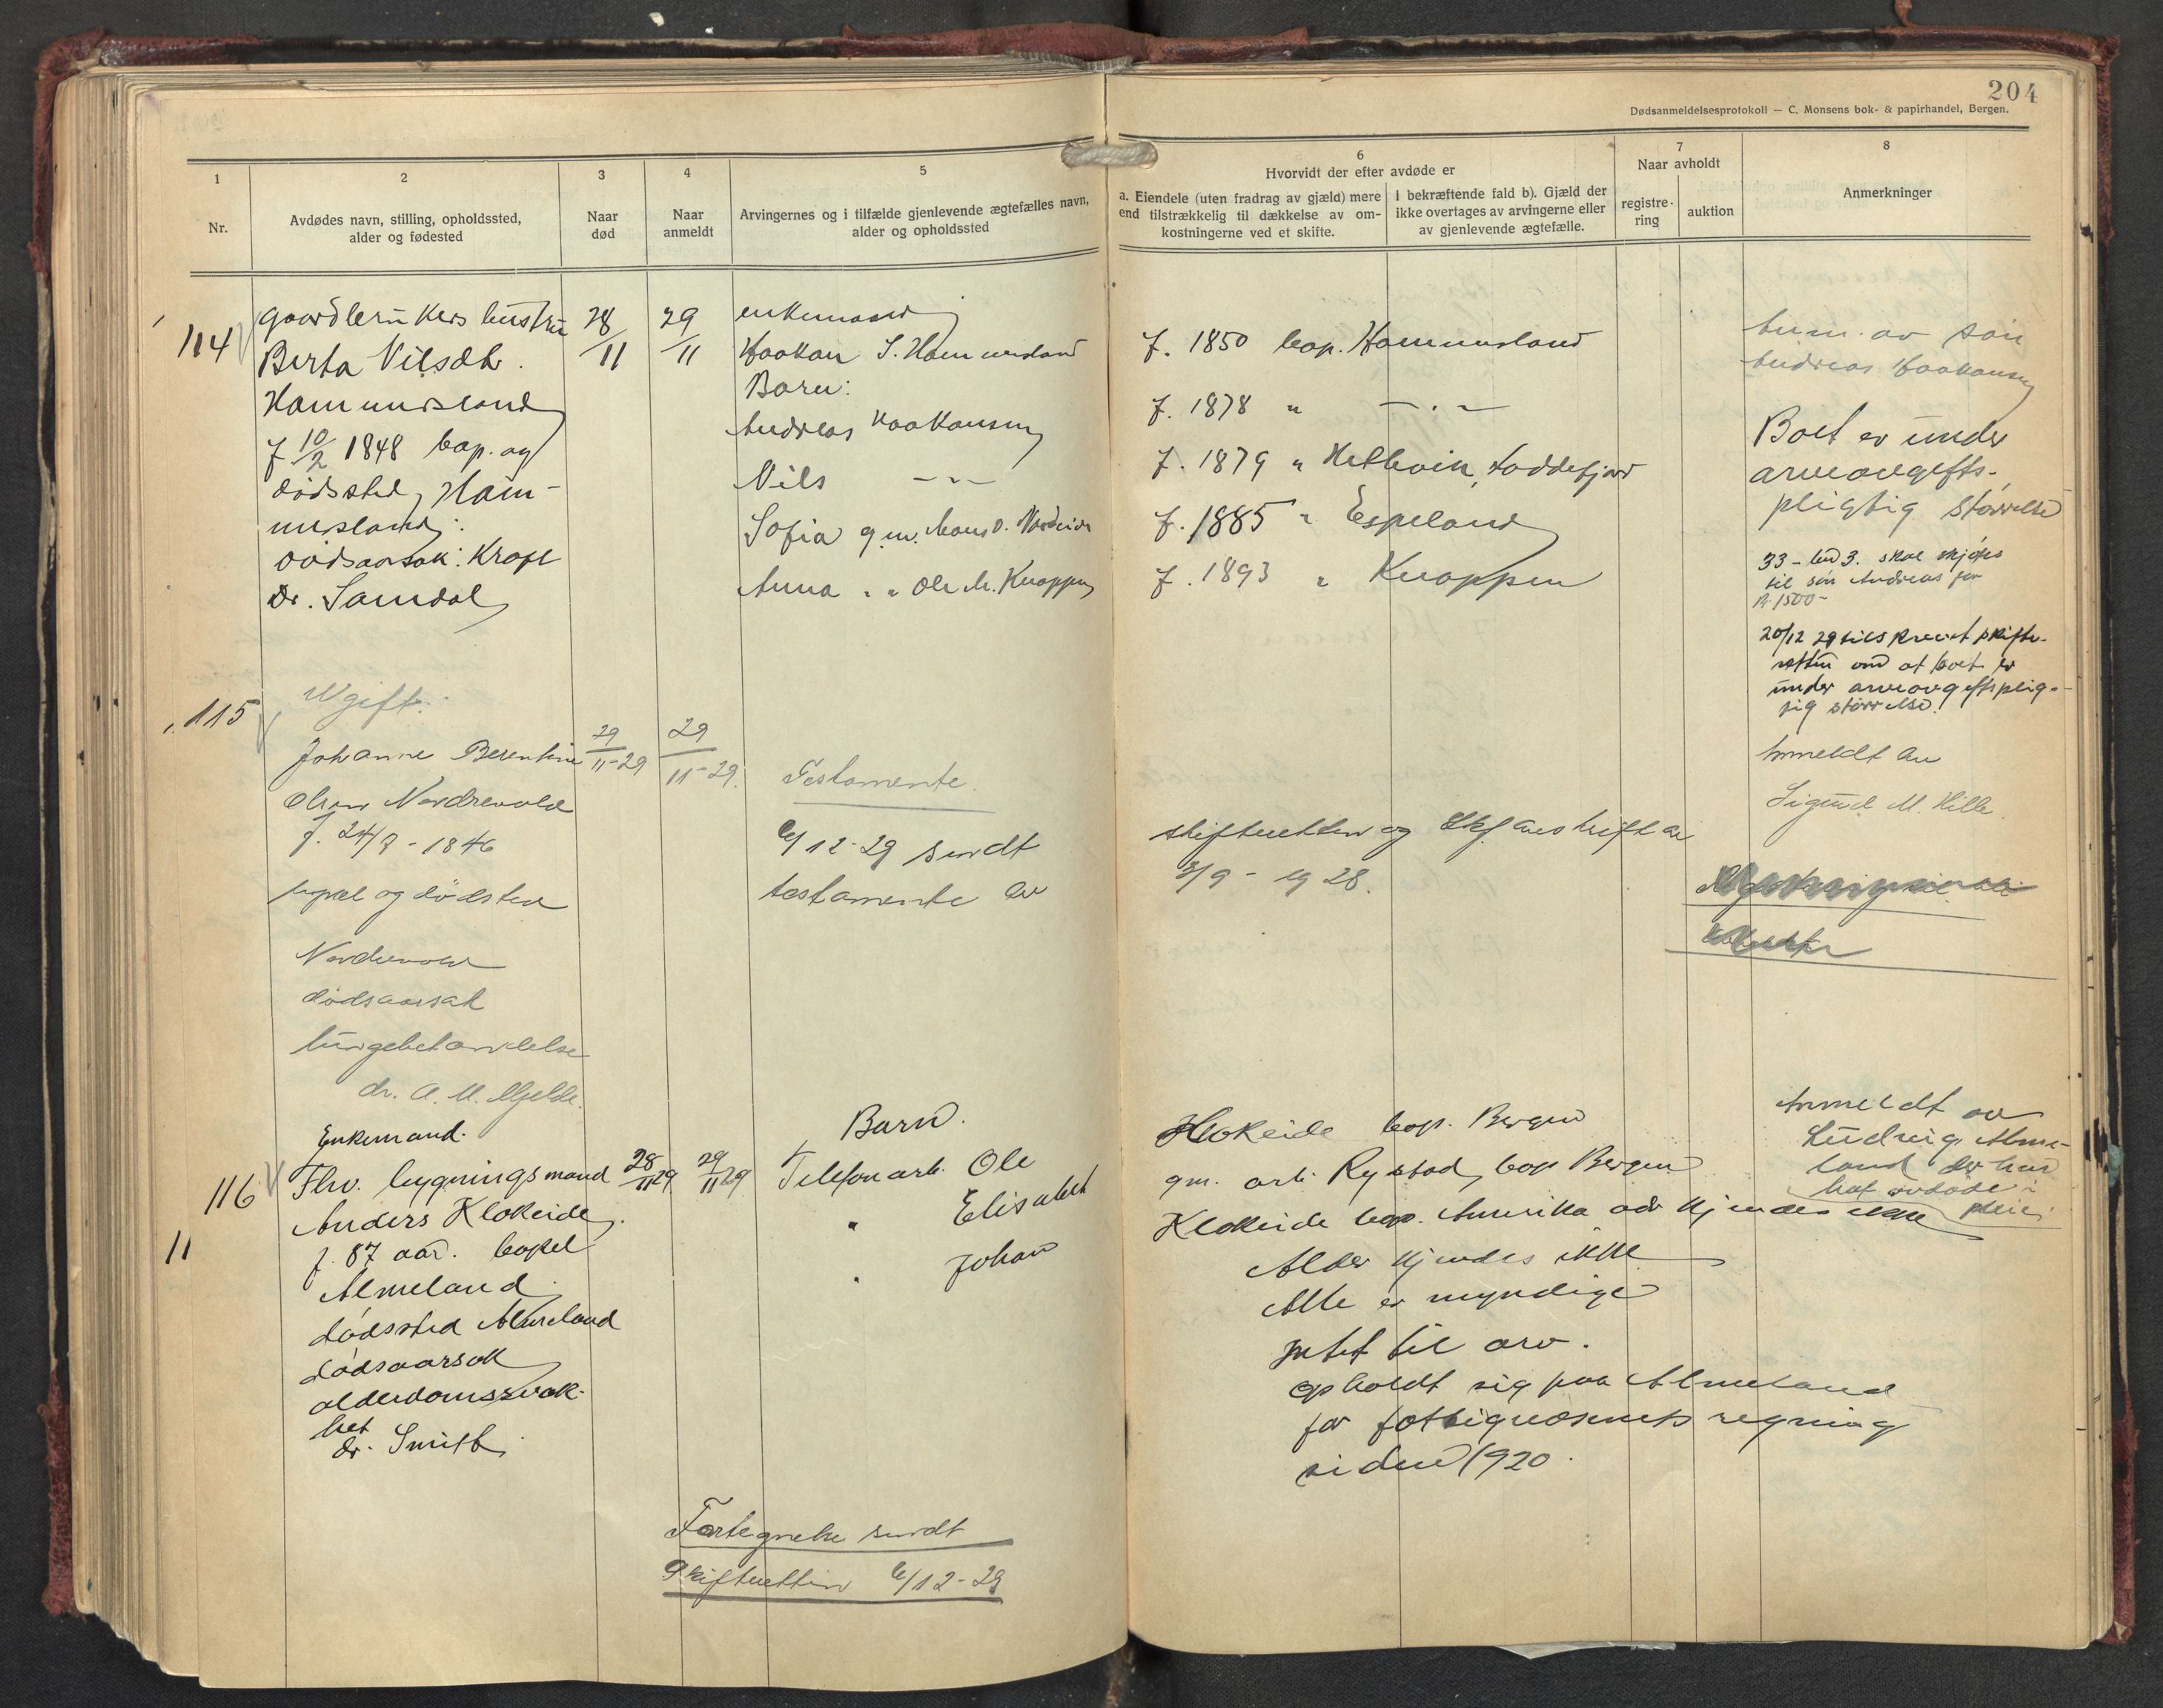 204
Dødsanmeldelsesprotokoll — C. Monsens bok- & papirhandel, Bergen.
1
Nr.
2
Avdødes navn, stilling, opholdssted,
alder og fødested
3
Naar
død
4
Naar
anmeldt
5
Arvingernes og i tilfælde gjenlevende ægtefælles navn,
alder og opholdssted
6
Hvorvidt der efter avdøde er
a. Eiendele (uten fradrag av gjæld) mere
end tilstrækkelig til dækkelse av om-
kostningerne ved et skifte.
I bekræftende fald b). Gjæld der
ikke overtages av arvingerne eller
av gjenlevende ægtefælle.
7
Naar avholdt
registre-
ring
auktion
8
Anmerkninger
114
gaardbrukers hustru
Berta Nilsdtr.
Hammersland
f 10/2 1848 bop. og
dødssted Ham-
mersland.
dødsaarsak: Kræft
Dr. Samdal
28/11
29/11
enkemand
Haakon S. Hammersland
Barn:
Andreas Haakonsen
Nils — " —
Sofia g.m. Mons O.
Anna " " Ole M. Knappen
f. 1850 bop. Hammersland
f. 1878 " — " —
f. 1879 " Loddefjord
f. 1885 " Espeland
f. 1893 " Knappen
Anm. av søn
Andreas Haakonsen
Boet er under
arveavgifts-
pligtig størrelse
33 - bno 3. skal skjøtes
til søn Andreas for
kr. 1500-
20/12 29 tilskrevet skifte-
retten om at boet er
under arveavgiftsplig-
tig størrelse.
115
Ugift.
Johanne Berentine
Olsen Nordrevold
f. 24/9 - 1846
bopæl og dødsted
Nordrevold
dødsaarsak
lungebetændelse
dr. A. M. Mjelde.
29/11-29
29/11-29.
Testamente.
6/12-29 sendt
testamente av
skifteretten og avskrift av
3/9 - 1928.
Anmeldt av
Sigurd M. Hille.
116
11
Enkemand.
Fhv. bygningsmand
Anders Klokeide
f. 87 aar. bopel
Almeland
dødssted Almeland
dødsaarsak
alderdomssvak-
het
dr. Smith.
28/11 29
29/11 29
Barn.
Telefonarb. Ole
" Elisabeth
" Johan
Klokeide bop. Bergen
gm. arb. Rystad, bop Bergen
Klokeide bop. Amerika adr kjendes ikke
Alder kjendes ikke
Alle er myndige
Intet til arv.
Opholdt sig paa Almeland
for fattigvæsenets regning
siden 1920.
Anmeldt av
Ludvig Alme-
land der har
hat avdøde i
pleie.
Fortegnelse sendt
Skifteretten 6/12-29